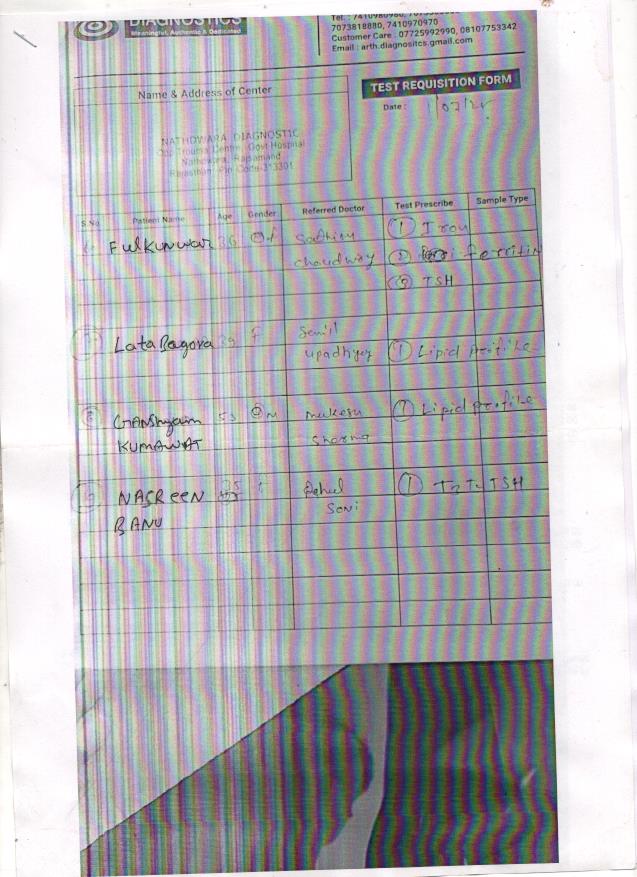 DIAGNOSTICS
Meaningful, Authentic & Dedicated
7073818880, 7410970970
Customer Care : 07725992990, 08107753342
Email : arth.diagnositcs.gmail.com
Name & Address of Center
TEST REQUISITION FORM
Date :
NATHDWARA DIAGNOSTIC
Opp Trauma Centre, Govt Hospital
Nathdwara, Rajsamand
Rajasthan Pin Code-313301
S.No Patient Name Age Gender Referred Doctor Test Prescribe Sample Type
FulKunwar 36 f ① Iron
choudhary ② ferritin
③ TSH
Lata Bagora 39 f
upadhyay ① Lipid profile
Ganshyam 53 M mukesh ① Lipid profile
KUMAWAT Sharma
NASREEN 35 f Rahul ① T3 T4 TSH
BANU Soni